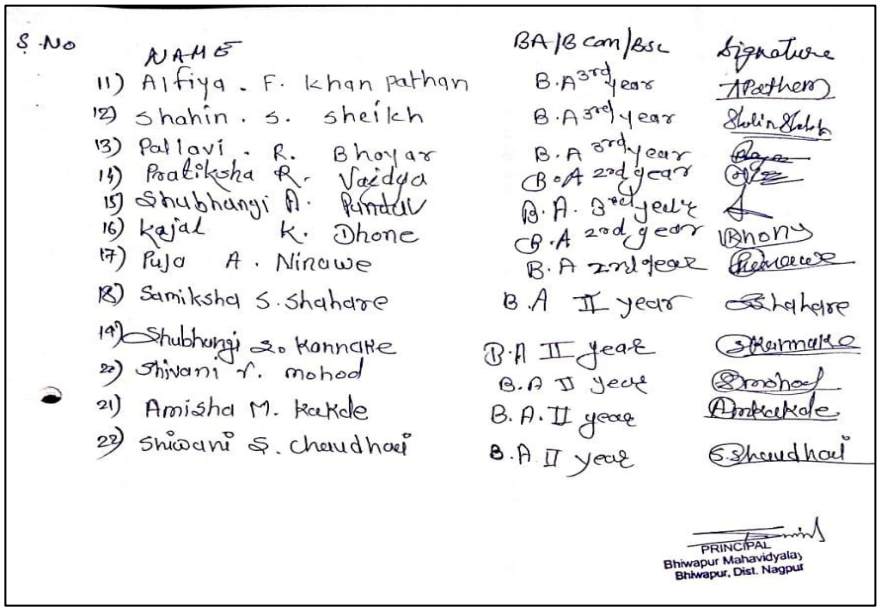 S.No NAME BA/Bcom/BSc Signature
11) Alfiya . F. Khan Pathan B.A 3rd year APathan
12) Shahin . S. Sheikh B.A 3rd year
13) Pallavi . R. Bhoyar B.A 3rd year
14) Pratiksha R. Vaidya B.A 2nd year
15) Shubhangi A. B.A. 3rd year
16) Kajal K. Dhone B.A 2nd year
17) Puja A . Ninawe B.A 2nd year
18) Samiksha S. Shahare B.A II year SShahare
19) Shubhangi S. Kannake B.A II year SKannake
20) Shivani Y. mohod B.A II year Smohod
21) Amisha M. Kakde B.A. II year AmKakde
22) Shiwani S. Chaudhari B.A II year S.Shaudhari
PRINCIPAL
Bhiwapur Mahavidyalay
Bhiwapur, Dist. Nagpur